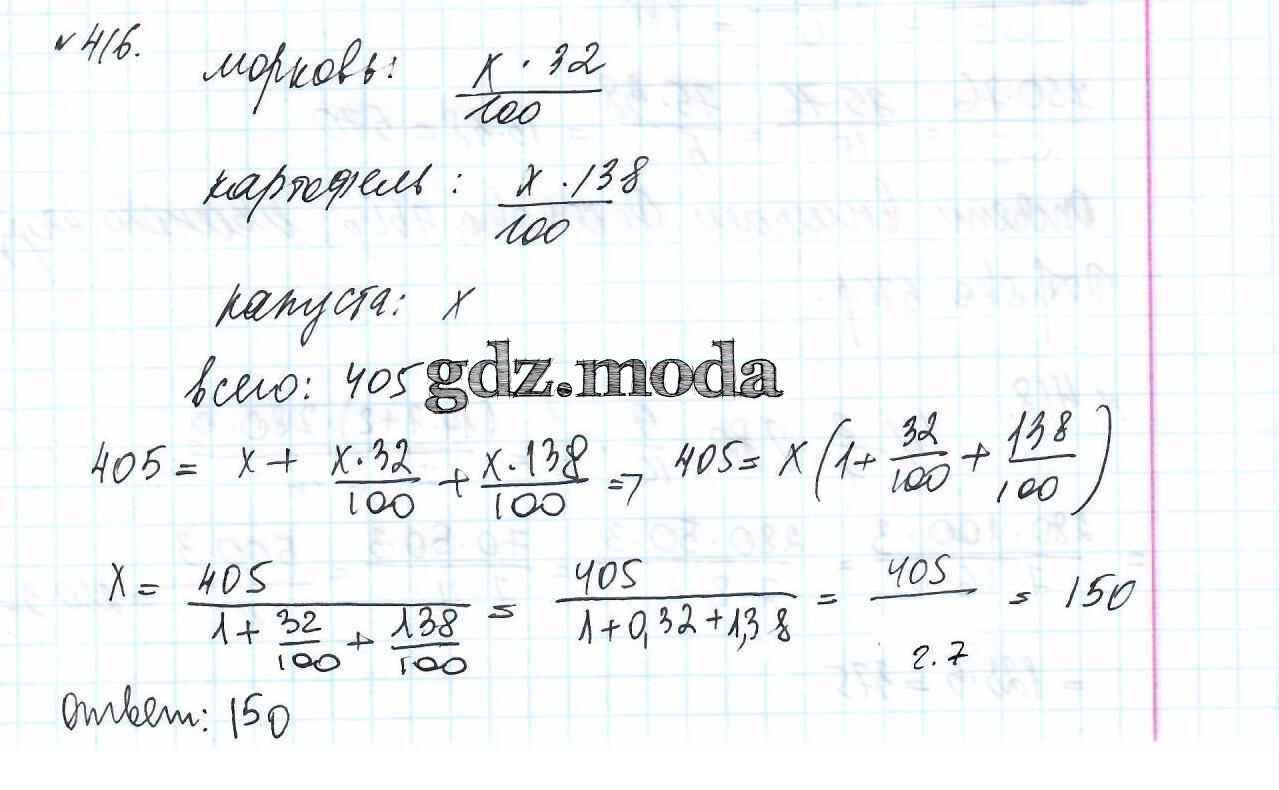 №416.
морковь: x · 32 / 100
картофель: x · 138 / 100
капуста: x
всего: 405
gdz.moda
405 = x + x · 32 / 100 + x · 138 / 100 => 405 = x (1 + 32/100 + 138/100)
x = 405 / (1 + 32/100 + 138/100) = 405 / (1 + 0,32 + 1,38) = 405 / 2.7 = 150
ответ: 150